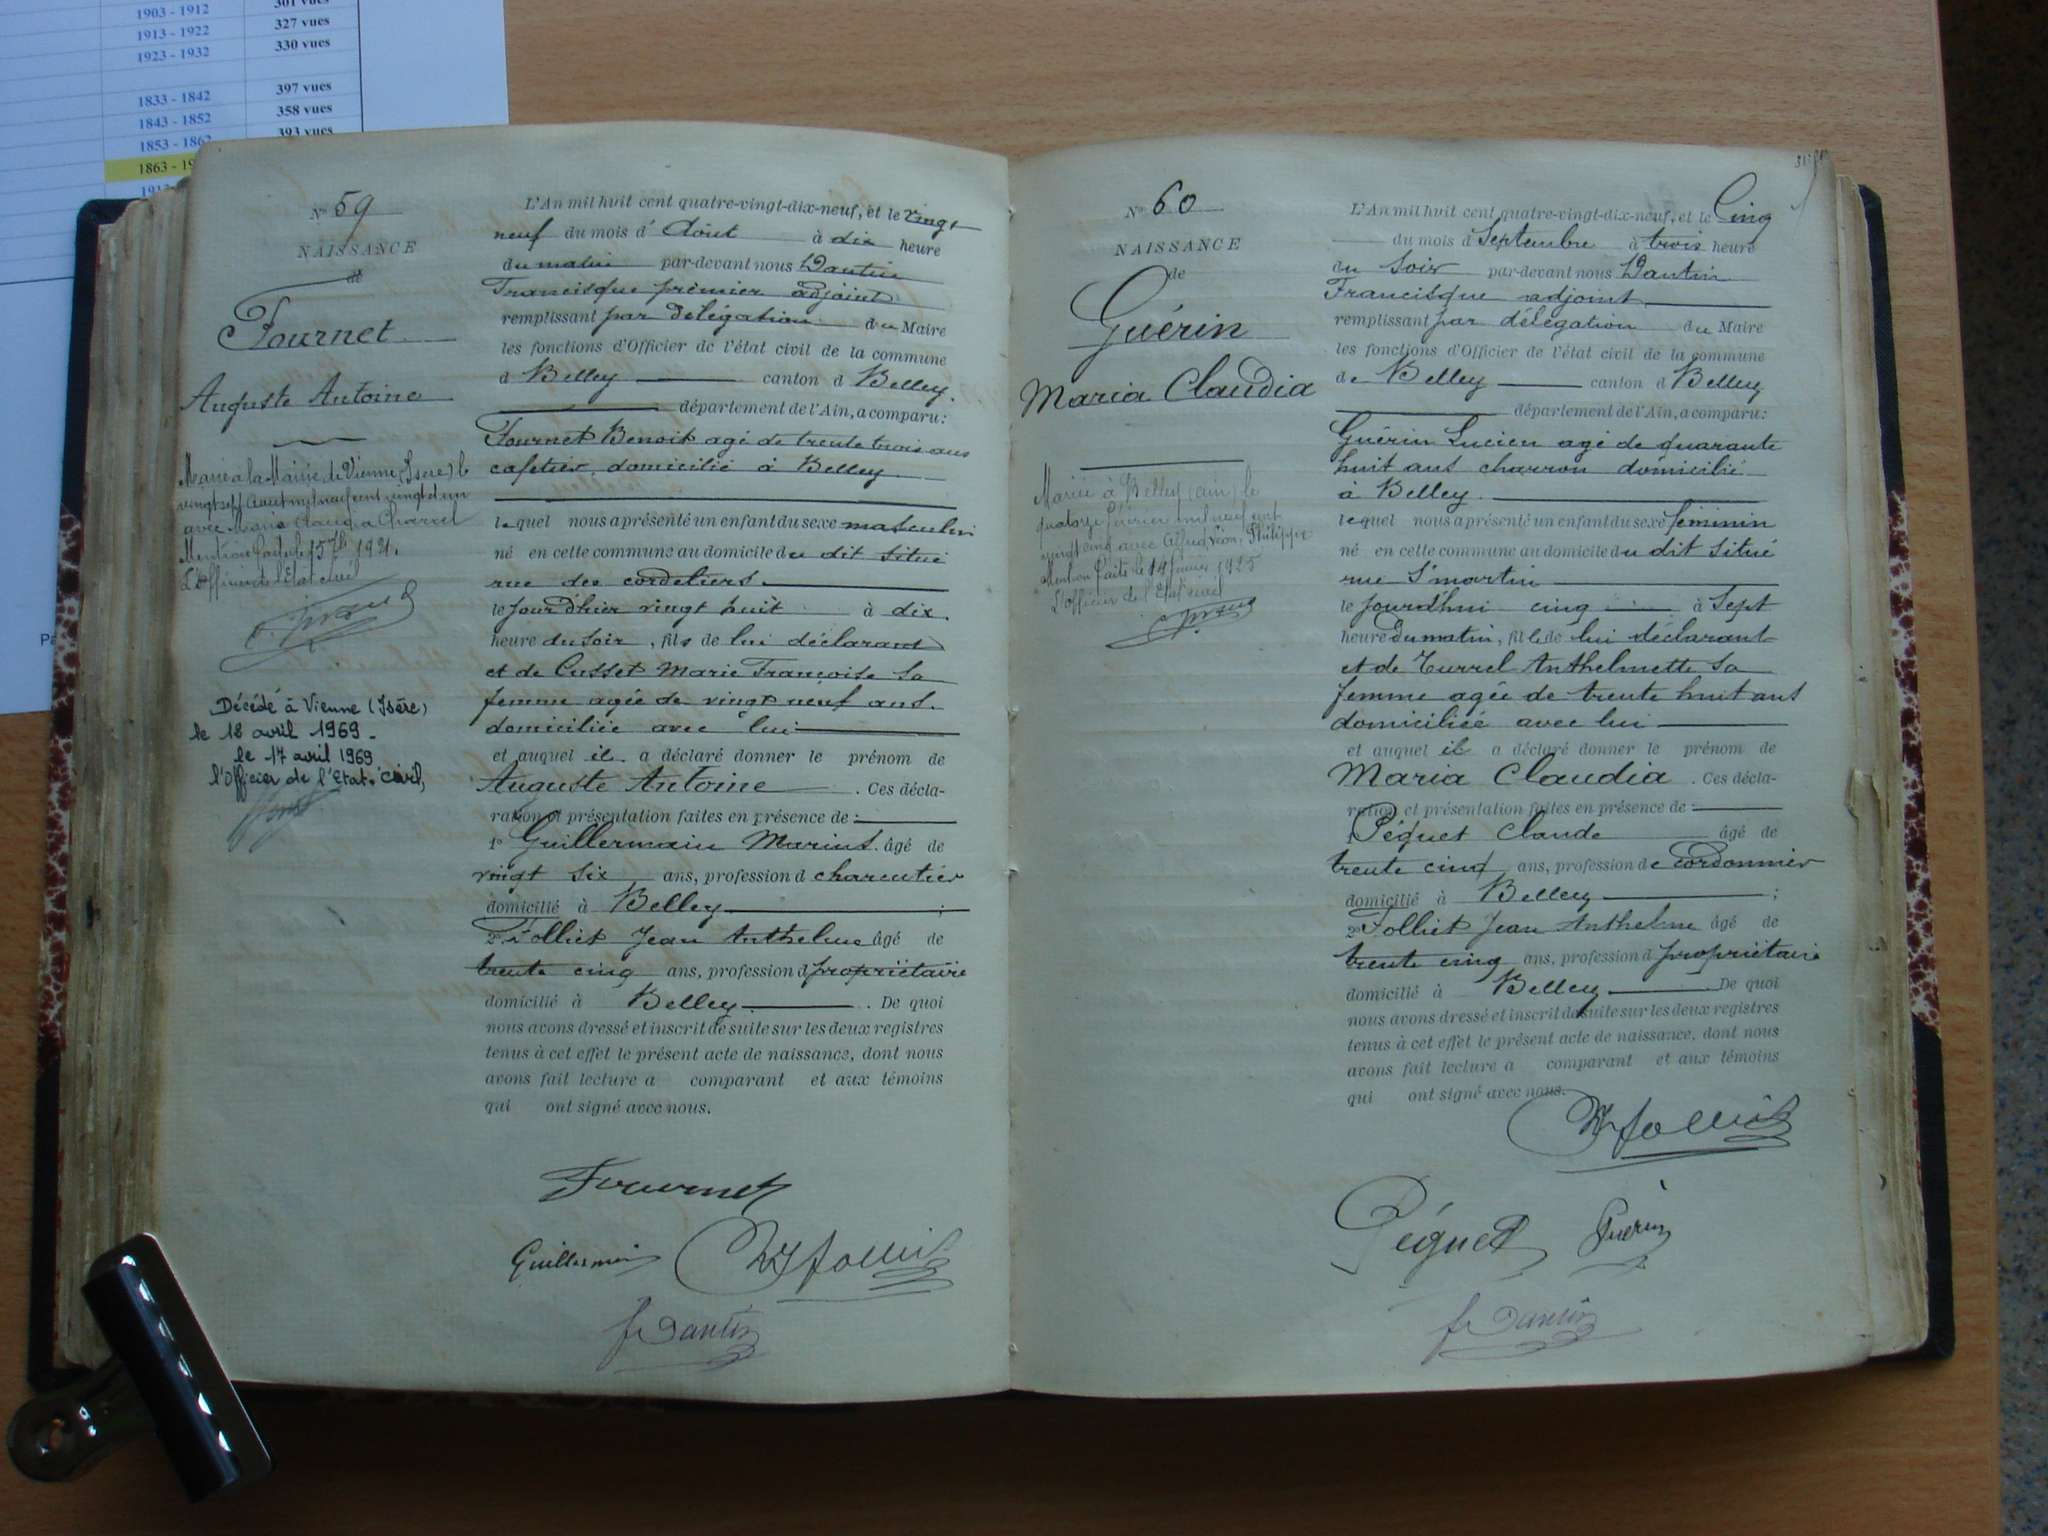 301 vues
1903 - 1912
327 vues
1913 - 1922
330 vues
1923 - 1932
397 vues
1833 - 1842
358 vues
1843 - 1852
393 vues
1853 - 1862
1863 - 19
N° 59
NAISSANCE
de
Fournet
Auguste Antoine
Marié à la Mairie de Vienne (Isère) le
vingt sept Août mil neuf cent vingt et un
avec Maria Claudia Charvet
Mention faite le 15 7bre 1921.
L'Officier de l'Etat civil
Décédé à Vienne (Isère)
le 12 avril 1969 -
le 17 avril 1969
l'Officier de l'Etat.civil,
L'An mil huit cent quatre-vingt-dix-neuf, et le vingt
neuf du mois d' Août à dix heure
du matin par-devant nous Dantin
Francisque premier adjoint
remplissant par délégation du Maire
les fonctions d'Officier de l'état civil de la commune
d Belley canton d Belley.
département de l'Ain, a comparu:
Fournet Benoit agé de trente trois ans
cafetier, domicilié à Belley
lequel nous a présenté un enfant du sexe masculin
né en cette commune au domicile du dit situé
rue des cordeliers.
le jour d'hier vingt huit à dix
heure du soir, fils de lui déclarant
et de Cusset Marie Françoise sa
femme agée de vingt neuf ans.
domiciliée avec lui
et auquel il a déclaré donner le prénom de
Auguste Antoine . Ces décla-
ration et présentation faites en présence de :
1° Guillermain Marius. âgé de
vingt six ans, profession d charcutier
domicilié à Belley ;
2° Folliet Jean Anthelme âgé de
trente cinq ans, profession d propriétaire
domicilié à Belley . De quoi
nous avons dressé et inscrit de suite sur les deux registres
tenus à cet effet le présent acte de naissance, dont nous
avons fait lecture a comparant et aux témoins
qui ont signé avec nous.
Fournet
Guillermain
Folliet
f Dantin
N° 60
NAISSANCE
de
Guérin
Maria Claudia
Mariée à Belley (ain) le
quatorze février mil neuf cent
vingt cinq avec Philippe
Mention faite le 14 février 1925
L'officier de l'Etat civil
L'An mil huit cent quatre-vingt-dix-neuf, et le Cinq
du mois d Septembre à trois heure
du soir par-devant nous Dantin
Francisque adjoint
remplissant par délégation du Maire
les fonctions d'Officier de l'état civil de la commune
de Belley canton d Belley
département de l'Ain, a comparu:
Guérin Lucien agé de quarante
huit ans charron domicilié
à Belley.
lequel nous a présenté un enfant du sexe féminin
né en cette commune au domicile du dit situé
rue St martin
le jourd'hui cinq à sept
heure du matin, fille de lui déclarant
et de Turrel Anthelmette sa
femme agée de trente huit ans
domiciliée avec lui
et auquel il a déclaré donner le prénom de
Maria Claudia . Ces décla-
ration et présentation faites en présence de :
Péquet Claude âgé de
trente cinq ans, profession de cordonnier
domicilié à Belley ;
2° Folliet Jean Anthelme âgé de
trente cinq ans, profession d propriétaire
domicilié à Belley De quoi
nous avons dressé et inscrit de suite sur les deux registres
tenus à cet effet le présent acte de naissance, dont nous
avons fait lecture a comparant et aux témoins
qui ont signé avec nous.
Folliet
Péquet
Guérin
f Dantin